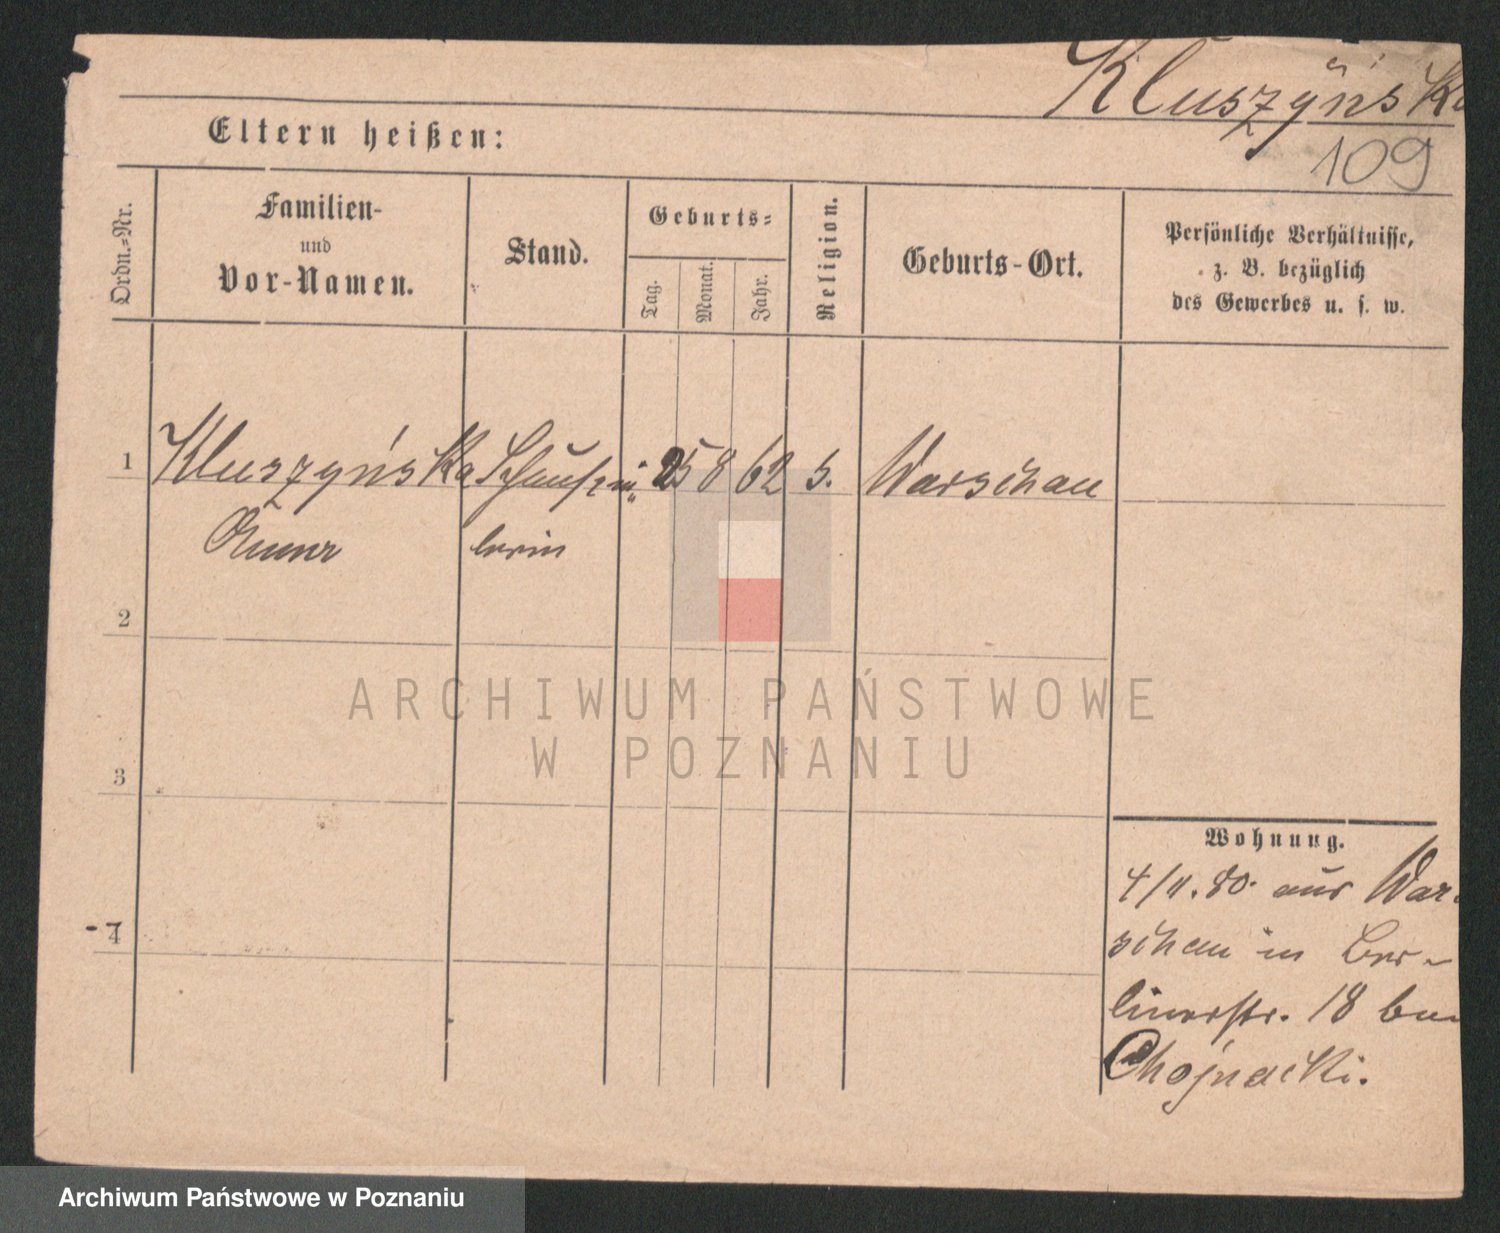 Kluszyńska
109
Eltern heißen:
Ordn.-Nr.
Familien-
und
Vor-Namen.
Stand.
Geburts-
Tag.
Monat.
Jahr.
Religion.
Geburts-Ort.
Persönliche Verhältnisse,
z. B. bezüglich
des Gewerbes u. s. w.
1
Kluszyńska Schauspie„ 25 8 62 Warschau
lerin
2
3
4
Wohnung.
4/11. 80. aus War-
schau in Ber-
linerstr. 18 bei
Chojnacki.
ARCHIWUM PAŃSTWOWE
W POZNANIU
Archiwum Państwowe w Poznaniu